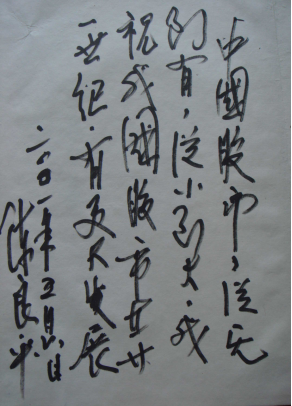 中國股市，從无
到有，從小到大。我
祝我國股市在廿
一世纪，有更大发展
二〇〇一年五月日
陈良平